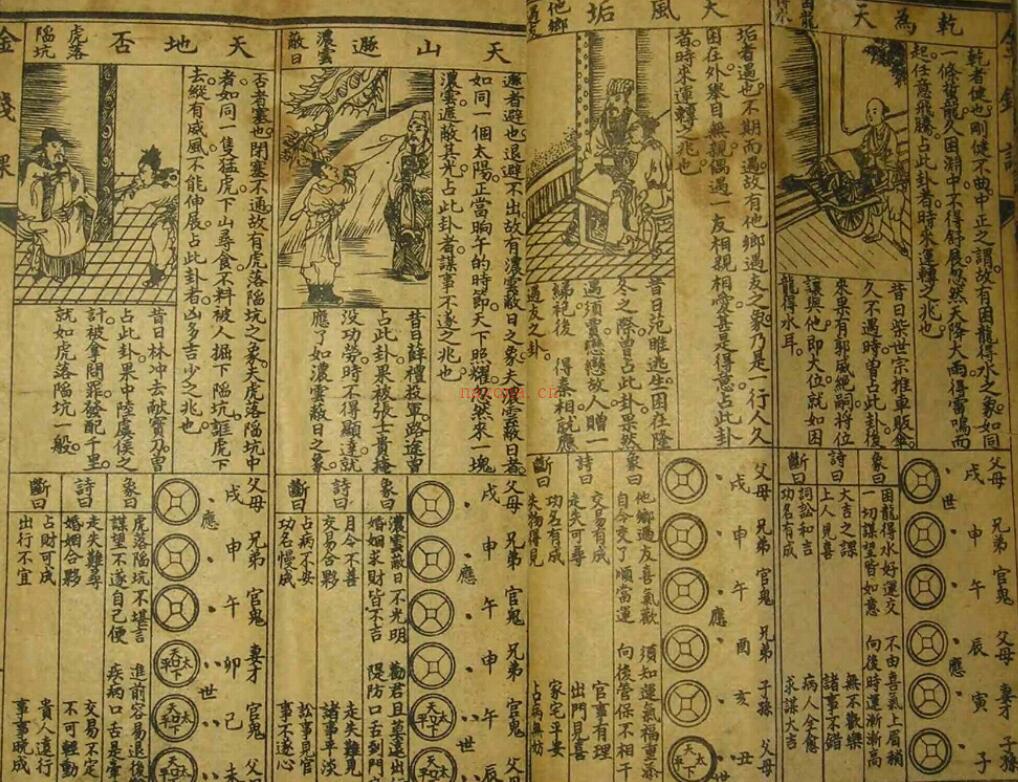 乾為天
困龍得水
乾者健也剛健不曲中正之謂故有困龍得水之象如同
一條蒼龍久困淵中不得舒展忽然天降大雨得雷鳴而
起任意飛騰占此卦者時來運轉之兆也
昔日柴世宗推車販傘
久不遇時曾占此卦後
來果有郭威絕嗣將位
讓與他即大位就如困
龍得水耳
父母 戌 世
兄弟 申
官鬼 午
父母 辰 應
妻才 寅
子孫 子
象曰
困龍得水好運交 不由喜氣上眉稍
一切謀望皆如意 向後時運漸漸高
詩曰
大吉之課 無不歡樂
上人見喜 諸事不錯
斷曰
詞訟和吉 病人全愈
功名有成 求謀大吉
天風姤
他鄉遇友
垢者遇也不期而遇故有他鄉遇友之象乃是一行人久
困在外舉目無親偶遇一友相親相愛甚是得意占此卦
者時來運轉之兆也
昔日范雎逃生困在隆
冬之際曾占此卦果然
遇須賈戀戀故人贈一
綈袍後 得秦相就應
遇友之卦
父母 戌
兄弟 申
官鬼 午 應
兄弟 酉
子孫 亥
父母 丑 世
象曰
他鄉遇友喜氣歡 須知運氣福重添
自今交了順當運 向後管保不相干
詩曰
交易有成 官事有理
走失可尋 出門見喜
斷曰
功名有成 家宅平安
失物得見 占病無妨
天山遯
濃雲蔽日
遯者避也退避不出故有濃雲蔽日之象夫濃雲蔽日者
如同一個太陽正當晌午的時節天下照耀忽然來一塊
濃雲遮蔽其光占此卦者謀事不遂之兆也
昔日薛禮投軍路途曾
占此卦果被張士貴掩
沒功勞時不得顯達就
應了如濃雲蔽日之象
父母 戌
兄弟 申 應
官鬼 午
兄弟 申
官鬼 午 世
父母 辰
象曰
濃雲蔽日不光明 勸君且莫遠出
婚姻求財皆不吉 隄防口舌到門
詩曰
月令不善 走失難見
交易合夥 諸事平淡
斷曰
占病不安 訟事見官
功名慢成 事事不遂心
天地否
虎落陷坑
否者塞也閉塞不通故有虎落陷坑之象夫虎落陷坑中
者如同一隻猛虎下山尋食不料被人掘下陷坑誆虎下
去縱有威風不能伸展占此卦者凶多吉少之兆也
昔日林冲去献寶刀曾
占此卦果中陸虞侯之
計被拿問罪發配千里
就如虎落陷坑一般
父母 戌 應
兄弟 申
官鬼 午
妻才 卯 世
官鬼 巳
父母 未
象曰
虎落陷坑不堪言 進前容易退後
謀望不遂自己便 疾病口舌是牽
詩曰
走失難尋 交易不定
婚姻合夥 不可輕動
斷曰
占財可成 貴人遠行
出行不宜 事事晚成
金錢課
nayona.cn